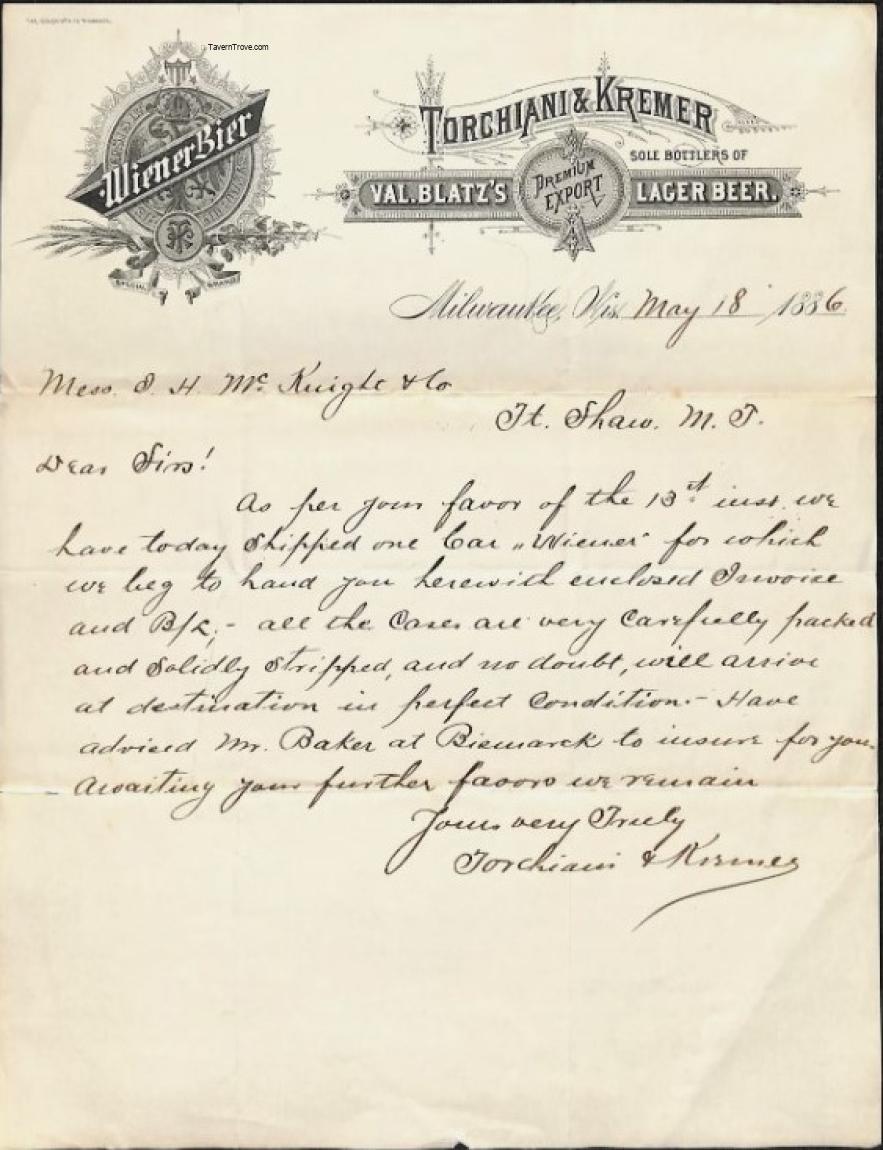 TavernTrove.com
Wiener Bier
TORCHIANI & KREMER
SOLE BOTTLERS OF
VAL. BLATZ'S PREMIUM EXPORT LAGER BEER.
Milwaukee, Wis. May 18 1886.
Mess. J. H. McKnight & Co
Ft. Shaw. M. T.
Dear Sirs!
As per your favor of the 13st inst. we
have today Shipped one Car „Wiener" for which
we beg to hand you herewith enclosed Invoice
and B/L,- all the Cases are very Carefully packed
and Solidly Stripped, and no doubt, will arrive
at destination in perfect Condition.- Have
advised Mr. Baker at Bismarck to insure for you.
Awaiting your further favors we remain
Yours very Truly
Torchiani & Kremer